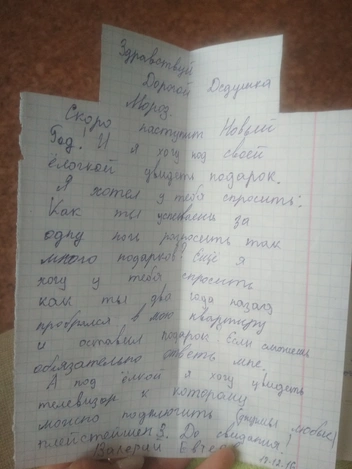 Здравствуй
Дорогой Дедушка
Мороз.
Скоро наступит Новый
Год. И я хочу под своей
ёлочкой увидеть подарок.
Я хотел у тебя спросить:
Как ты успеваеш за
одну ночь разносить так
много подарков? Ещё я
хочу у тебя спросить
как ты два года назад
пробрался в мою квартиру
и оставил подарок. Если сможеш
обязательно ответь мне.
А под ёлкой я хочу увидеть
телевизор к которому
можно подключить (фирмы любые)
плейстейшен 3. До свидания!
Валерий